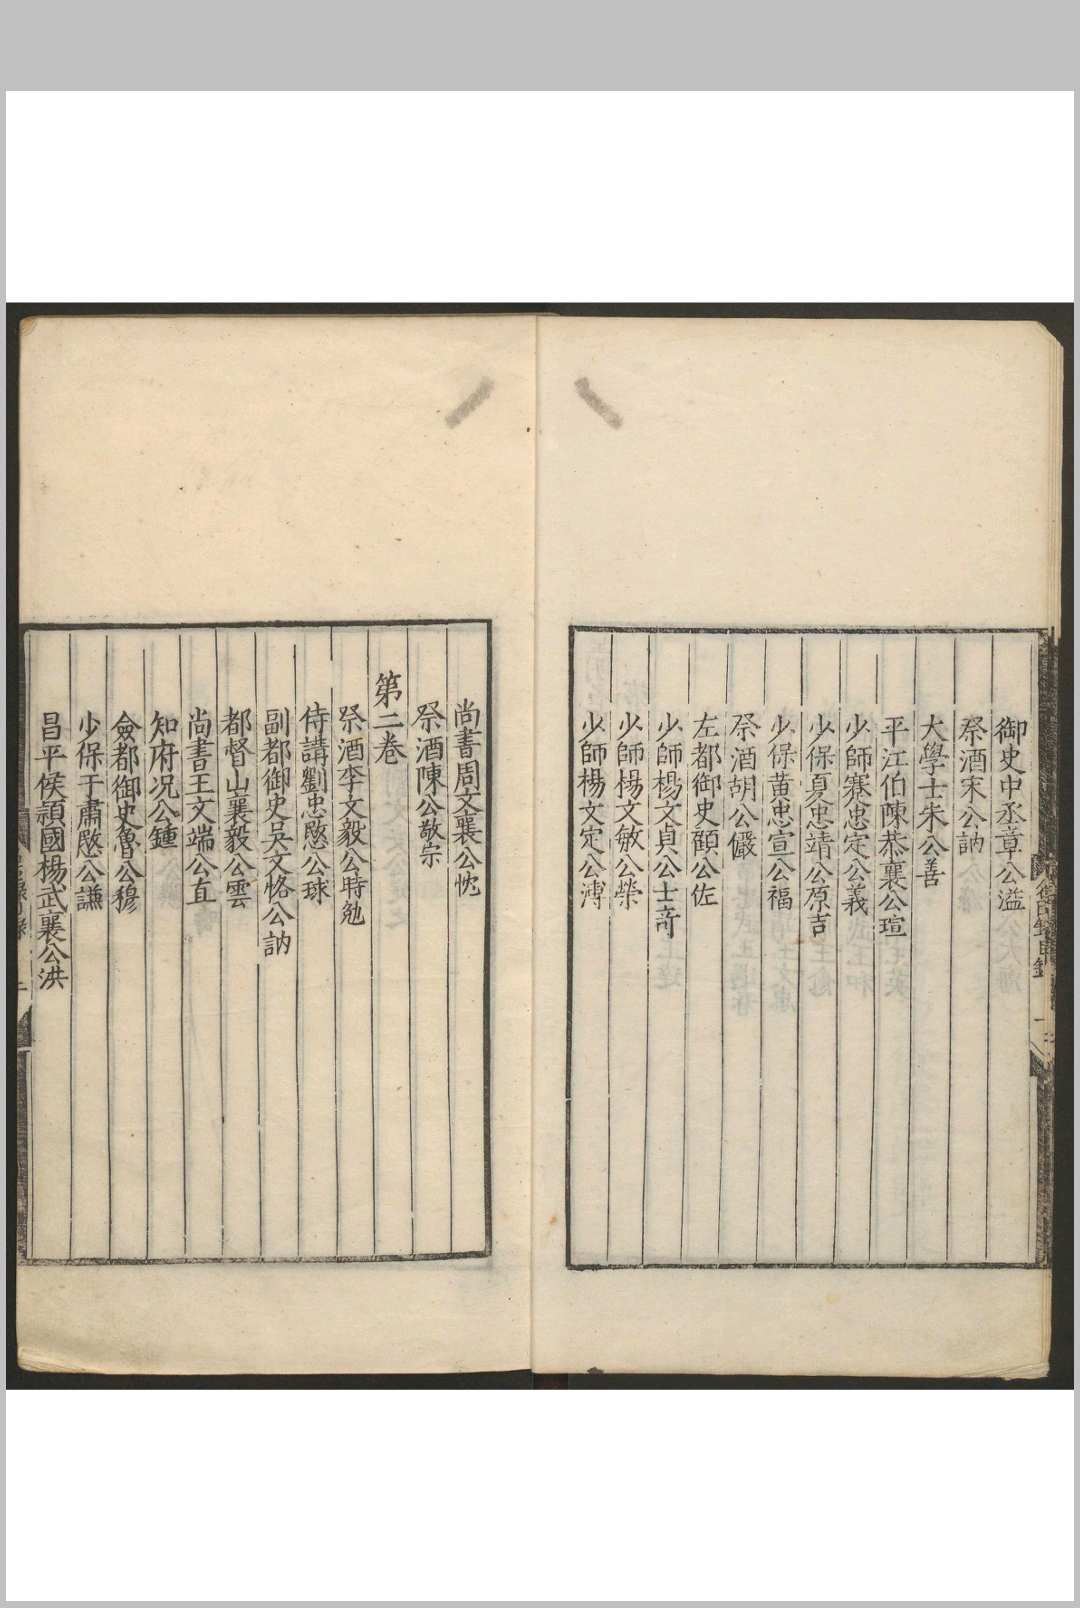 御史中丞章公溢
祭酒宋公訥
大學士朱公善
平江伯陳恭襄公瑄
少師蹇忠定公義
少保夏忠靖公原吉
少保黄忠宣公福
祭酒胡公儼
左都御史顧公佐
少師楊文貞公士竒
少師楊文敏公榮
少師楊文定公溥
尚書周文襄公忱
祭酒陳公敬宗
第二卷
祭酒李文毅公時勉
侍講劉忠愍公球
副都御史吴文恪公訥
都督山襄毅公雲
尚書王文端公直
知府况公鍾
僉都御史魯公穆
少保于肅愍公謙
昌平侯頴國楊武襄公洪